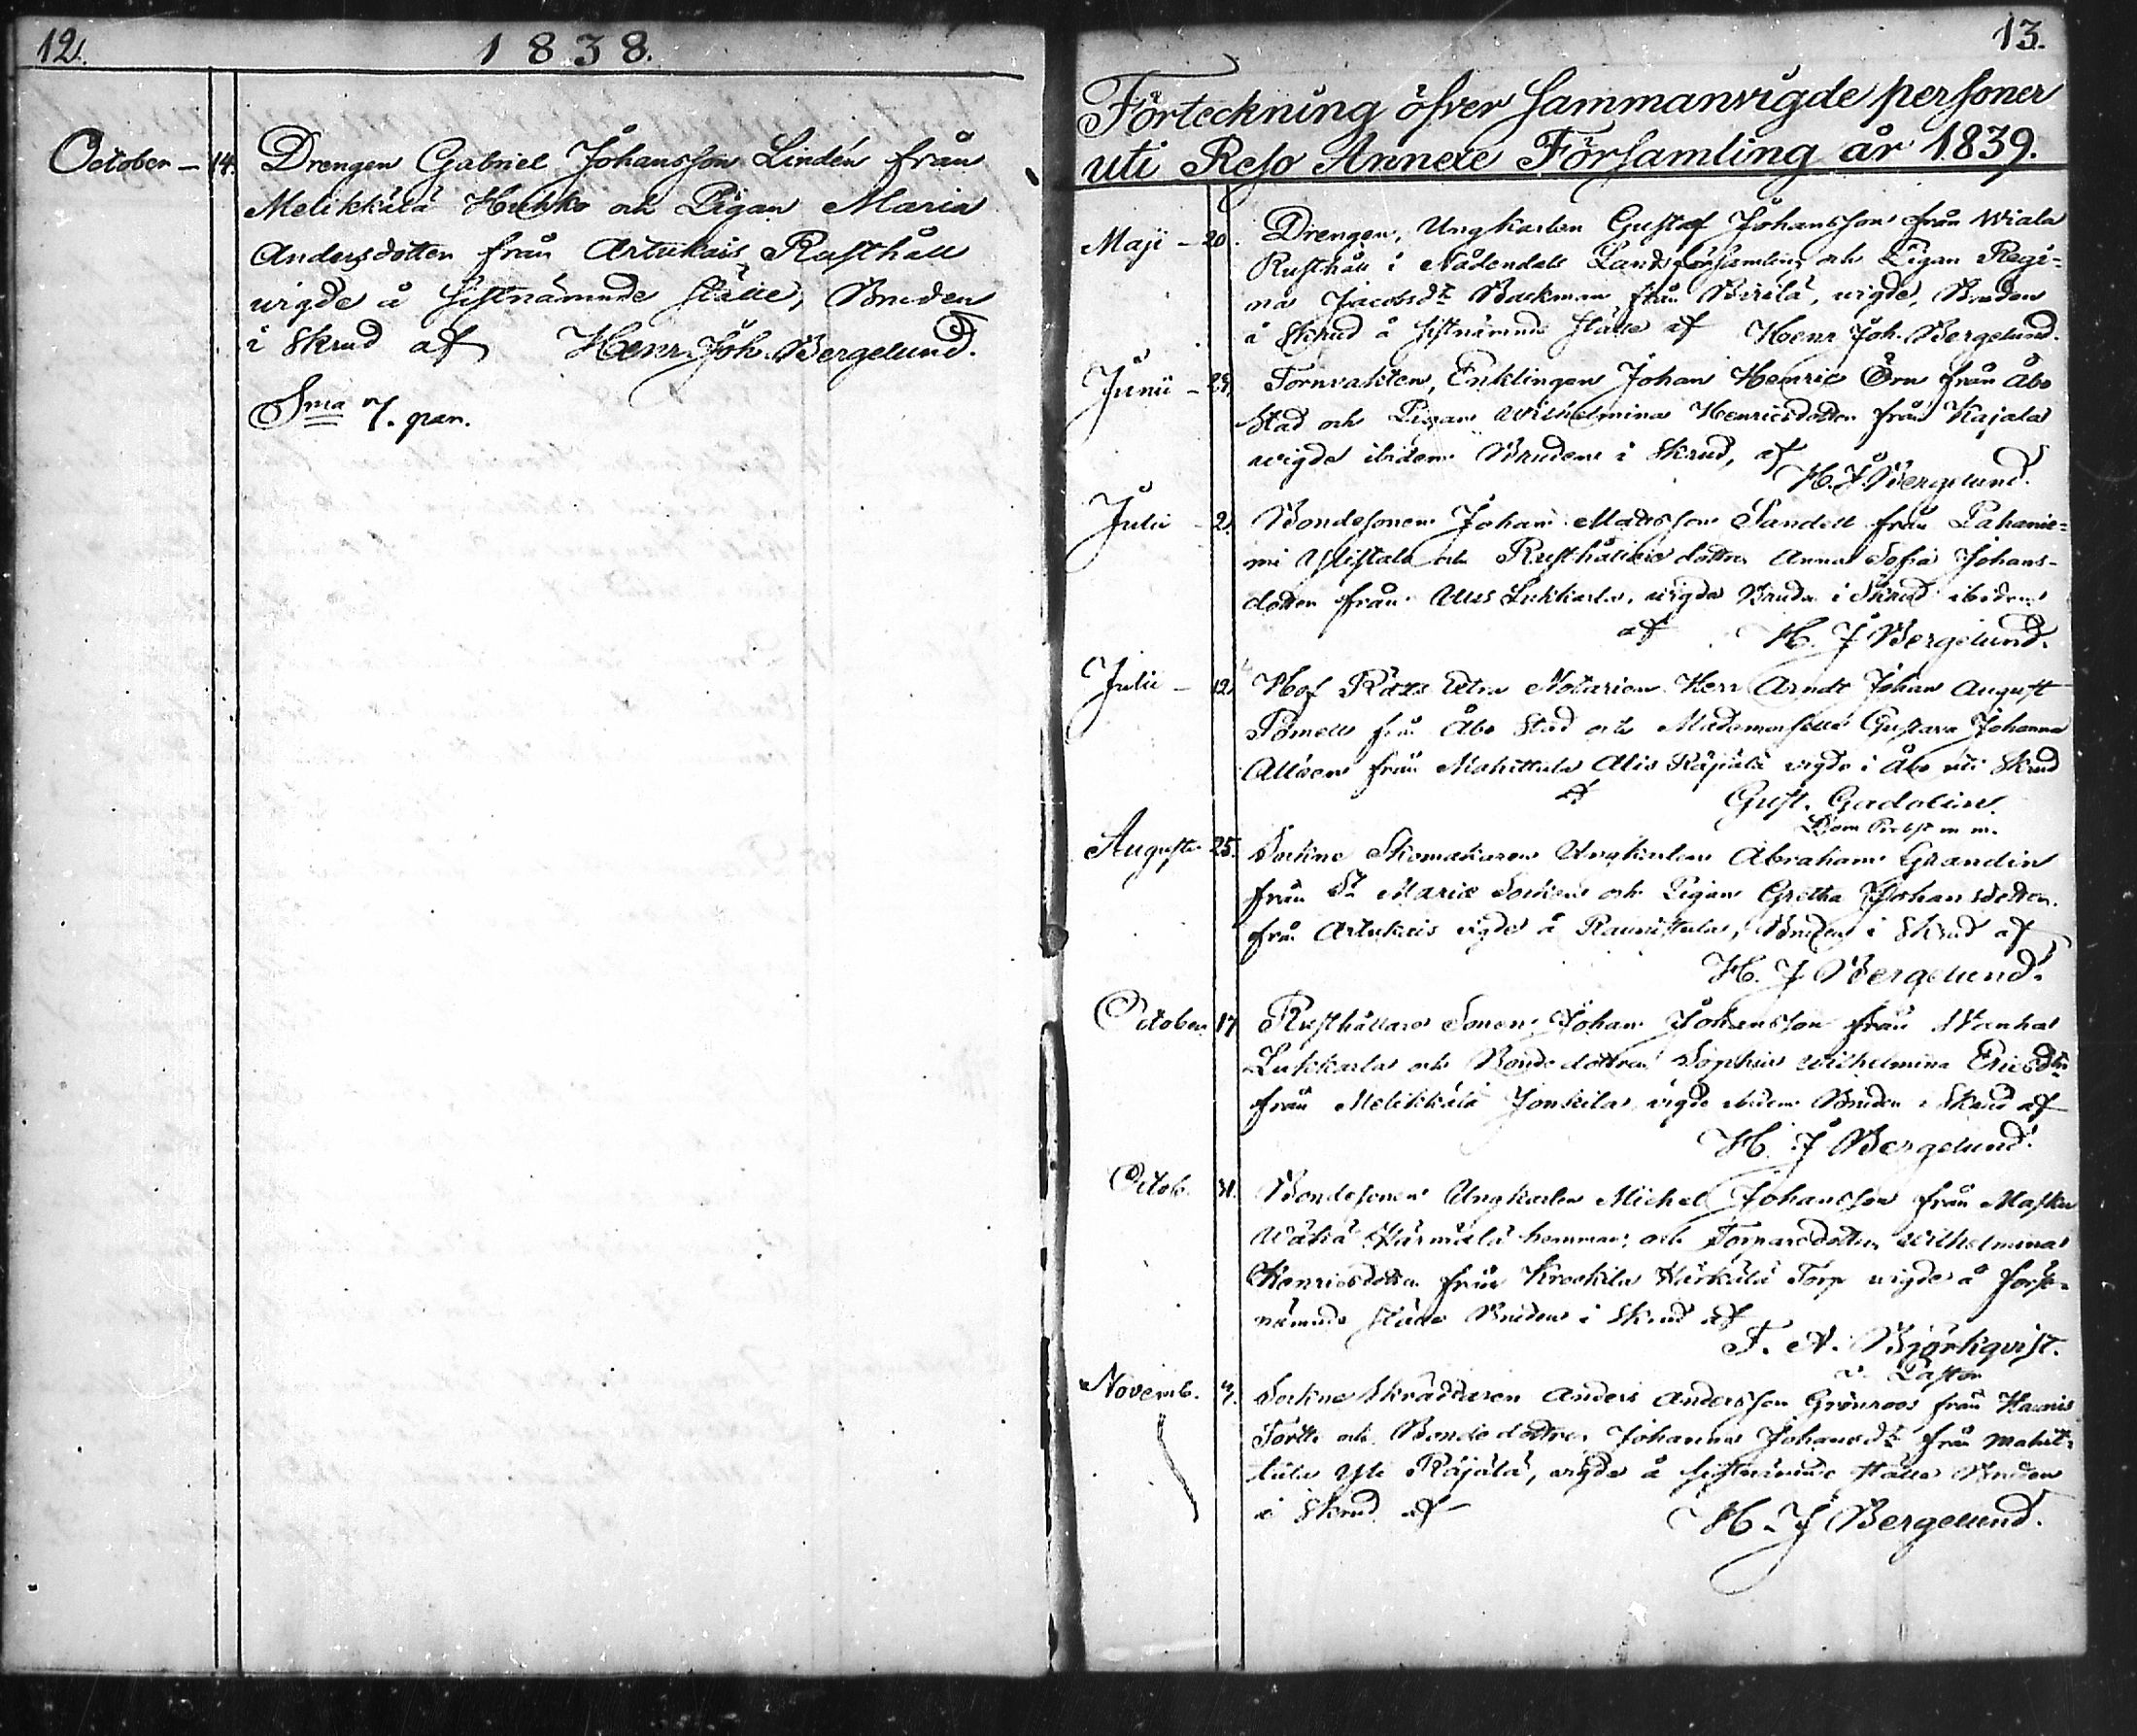 12.
1838.
October – 14.
Drengen Gabriel Johansson Lindén från
Melikkälä Huhko och Pigan Maria
Andersdotter från Artukais Rusthåll
wigde å sistnämnde ställe, Bruden
i Skrud af Henr. Joh. Bergelund.
Sma 7. par.
13.
Förteckning öfver Sammanvigde personer
uti Reso Annexe Församling år 1839.
Maji – 20.
Drengen, Ungkarlen Gustaf Johansson från Wiala
Rusthåll i Nådendals Landsförsamling och Pigan Regi=
na Jacobsdr Backman från wigde, Bruden
i Skrud å sistnämnde ställe af Henr Joh. Bergelund.
Junii – 29.
Tornvakten, Enklingen Johan Henric Örn från Åbo
Stad och Pigan Wilhelmina Henricsdotter från Kajala
wigde ibidem Bruden i Skrud, af
H. J. Bergelund.
Julii – 2.
Bondesonen Johan Matsson Sandell från Pahanie=
mi och Rusthållare dottren Anna Sofia Johans-
dotter från Uus Lukkarla, wigde Bruden i Skrud ibidem
af H. J Bergelund.
Julii – 12.
Hof Rätts Extra Notarien Herr Arndt Johan August
från Åbo Stad och Mademoiselle Gustava Johanna
Alléen från Mahittula Alis Räjälä vigde i Åbo uti Skrud
af Gust. Gadolin.
Dom Probst m. m.
Augusti 25.
Sockne Skomakaren Ungkarlen Abraham Grandin
från St Mariæ Socken och Pigan Gretha Johansdotter
från Artukais vigde å Raunistula, Bruden i Skrud af
H. J Bergelund.
October 17
Rusthållare Sonen Johan Johansson från Wanha
Lukkarla och Bonde dottren Sophia Wilhelmina Ericsdtr
från Melikkälä Jonkila, vigde ibidem Bruden i Skrud af
H. J Bergelund.
Octob. 31.
Bondesonen Ungkarlen Michel Johansson från Masku
Wähä Härmälä hemman, och Torparedottren Wilhelmina
Henricsdotter från Krookila Härkälä Torp wigde å först=
nämnde ställe Bruden i Skrud af
F. A. Björkqvist.
v. Pastor
Novemb. 9.
Sockne Skräddaren Anders Andersson Grönroos från Kaunis
Tortti och Bonde dottren Johanna Johansdr från Mahit=
tula Yli Räjälä, wigde å sistnämnde ställe Bruden
i Skrud af H. J Bergelund.